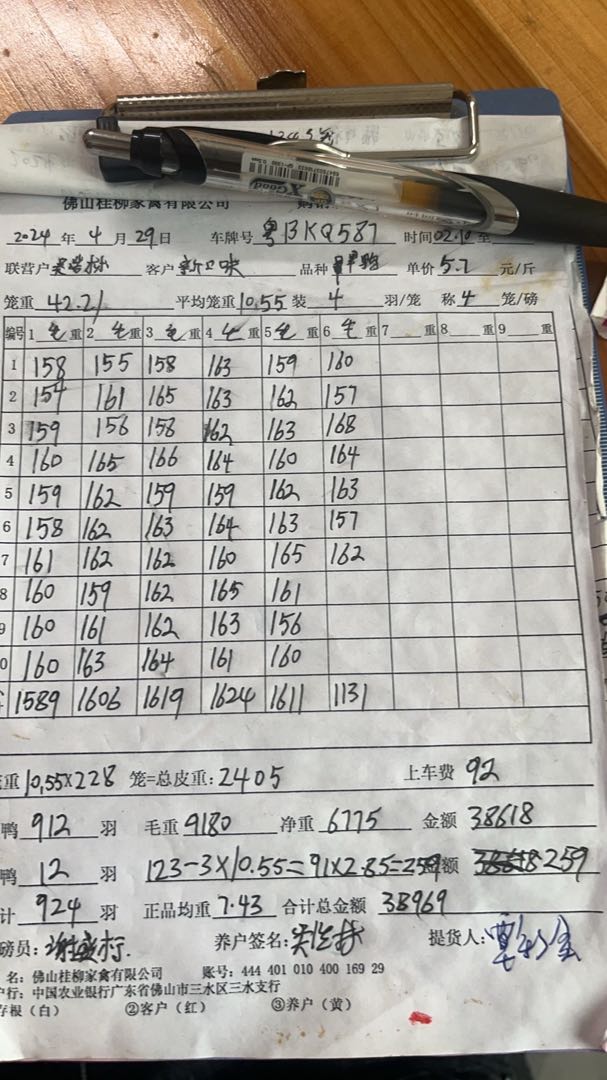 佛山桂柳家禽有限公司
2024 年 4 月 29 日 车牌号 粤BKQ587 时间 02.10 至
联营户 客户 新口味 品种 单价 5.7 元/斤
笼重 42.21 平均笼重 10.55 装 4 羽/笼 称 4 笼/磅
编号 1 毛 重 2 毛 重 3 毛 重 4 毛 重 5 毛 重 6 毛 重 7 重 8 重 9 重
1 158 155 158 163 159 160
2 154 161 165 163 162 157
3 159 156 158 162 163 168
4 160 165 166 164 160 164
5 159 162 159 159 162 163
6 158 162 163 164 163 157
7 161 162 162 160 165 162
8 160 159 162 165 161
9 160 161 162 163 156
0 160 163 164 161 160
1589 1606 1619 1624 1611 1131
重 10.55×228 笼=总皮重: 2405 上车费 92
鸭 912 羽 毛重 9180 净重 6775 金额 38618
鸭 12 羽 123-3×10.55=91×2.85=259 额 259
计 924 羽 正品均重 7.43 合计总金额 38969
磅员: 养户签名: 提货人:
名: 佛山桂柳家禽有限公司 账号: 444 401 010 400 169 29
户行: 中国农业银行广东省佛山市三水区三水支行
存根（白） ②客户（红） ③养户（黄）